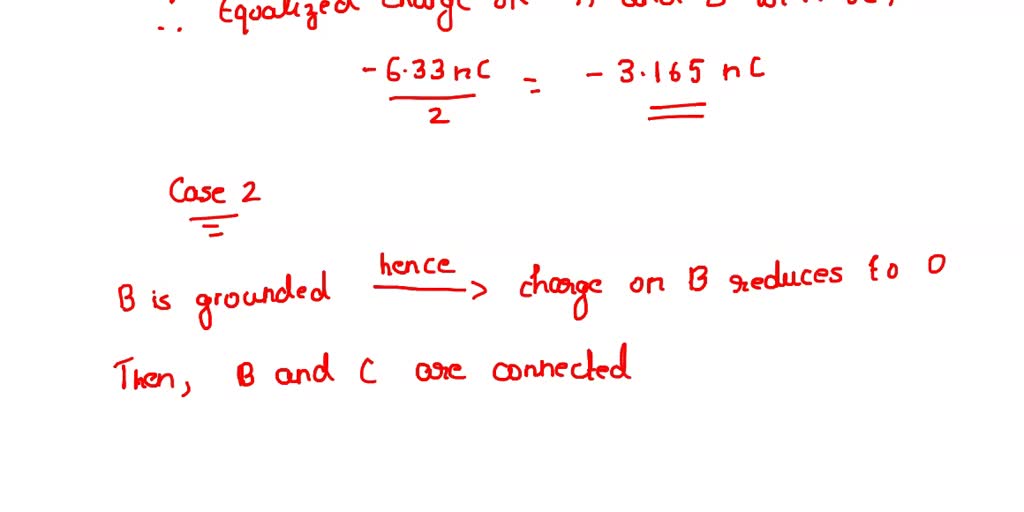 ∴ Equalized charge on A and B will be,
-6.33 nC / 2 = - 3.165 nC
Case 2
B is grounded hence → charge on B reduces to 0
Then, B and C are connected